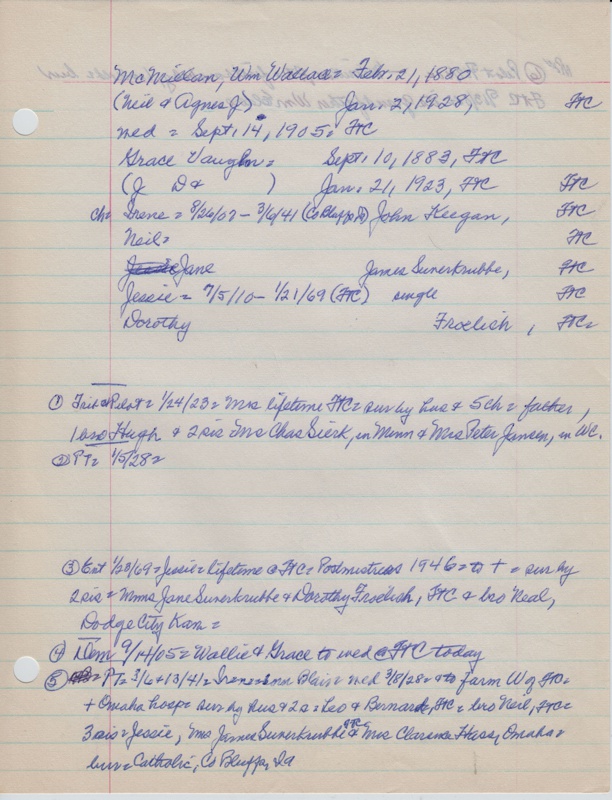 McMillan, Wm Wallace = Febr. 21, 1880
(Neil & Agnes J) Jan. 2, 1928, FtC
med = Sept. 14, 1905, FtC
Grace Vaughn = Sept. 10, 1883, FtC
(J D & ) Jan. 21, 1923, FtC FtC
ch = Irene = 8/26/07 - 3/6/41 (Co Bluffs) John Keegan, FtC
Neil = FtC
Jane James Sunerkrubbe, FtC
Jessie = 7/5/10 - 1/21/69 (FtC) single FtC
Dorothy Froelich, FtC =
① Trib & Pilot = 1/24/23 = Mrs lifetime FtC = sur by hus & 5 ch = father,
1 bro Hugh & 2 sis Mrs Chas Sierk, in Minn & Mrs Peter Jansen, in WC.
② PT = 1/5/28 =
③ Ent 1/28/69 = Jessie = lifetime @ FtC = Postmistress 1946 = to + = sur by
2 sis = Mmes Jane Sunerkrubbe & Dorothy Froelich, FtC & bro Neal,
Dodge City Kan =
④ Dem 9/14/05 = Wallie & Grace to wed @ FtC today
⑤ PT = 3/6 + 13/41 = Irene = Blair = med 3/8/28 = to farm W of FtC =
+ Omaha hosp = sur by hus & 2 s = Leo & Bernard, FtC = bro Neil, FtC =
3 sis = Jessie, Mrs James Sunerkrubbe FtC & Mrs Clarence Hess, Omaha =
bur = Catholic, Co Bluffs, Ia